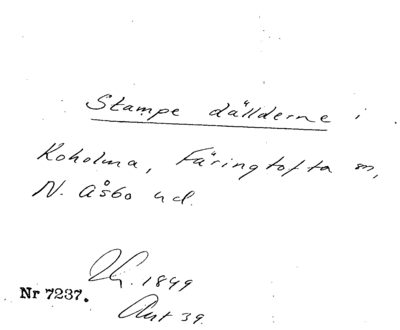 Stampe dällderne i
Koholma, Färingtofta sn,
N. Åsbo hd.
1849
Nr 7237.
Aut 39.